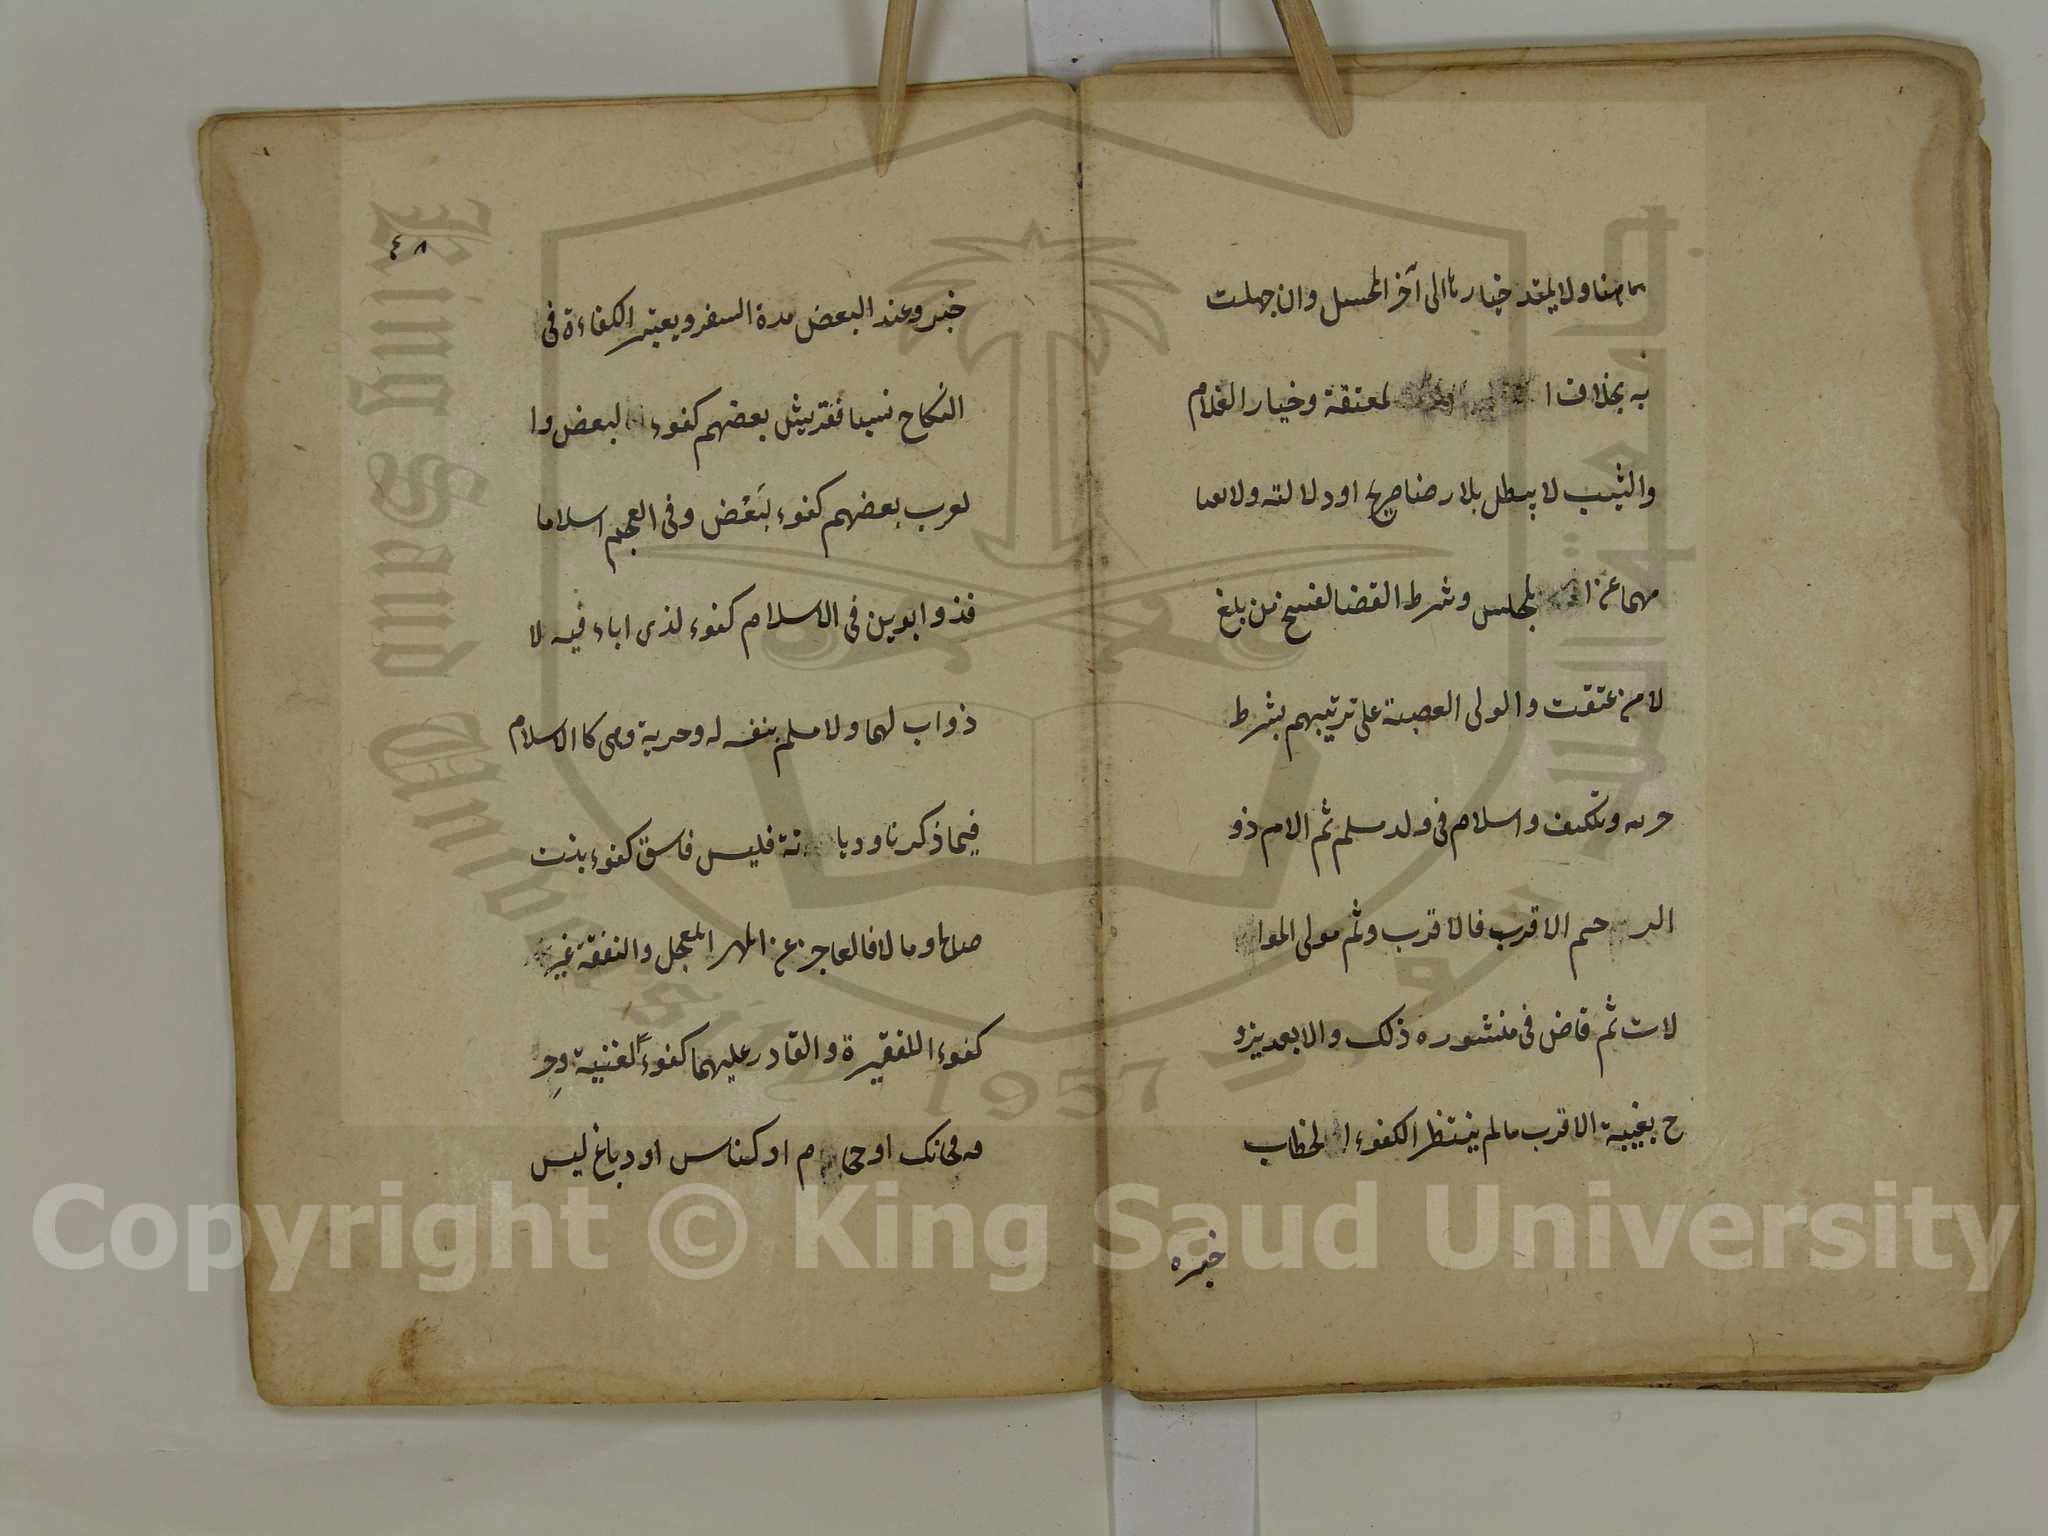 هنا ولا يمتد خيارها الى آخر المجلس وان جهلت
به بخلاف ا لمعتقة وخيار الغلام
والثيب لا يبطل بلا رضا صريح او دلالته ولا
مهما عن المجلس وشرط القضا لفسخ من بلغ
لا من عتقت والولى العصبة على ترتيبهم بشرط
حريه وتكليف واسلام فى ولد مسلم ثم الام ذو
الر حم الاقرب فالاقرب وثم مولى الموا
لات ثم قاض فى منشوره ذلك والابعد يزو
ج بغيبة الاقرب مالم ينتظر الكفوء الخطاب
خبره
٤٨
خبر وعند البعض مدة السفر ويعتبر الكفاءة فى
النكاح نسبا فقريش بعضهم كفوء لبعض وا
لعرب بعضهم كفوء لبَعْض وفى العجم اسلاما
فذو ابوين فى الاسلام كفوء لذى اباء فيه لا
ذو اب لهما ولا مسلم بنفسه له وحرية وهى كالاسلام
فيما ذكرنا وديا نة فليس فاسق كفوء بنت
صالح ومالا فالعاجز عن المهر المعجل والنفقة غير
كفوء اللفقيرة والقادر عليهما كفوءً لغنية وحِر
فه فحائك او حجا م او كناس او دباغ ليس
Copyright © King Saud University
King Saud University
جامعة الملك سعود
1957